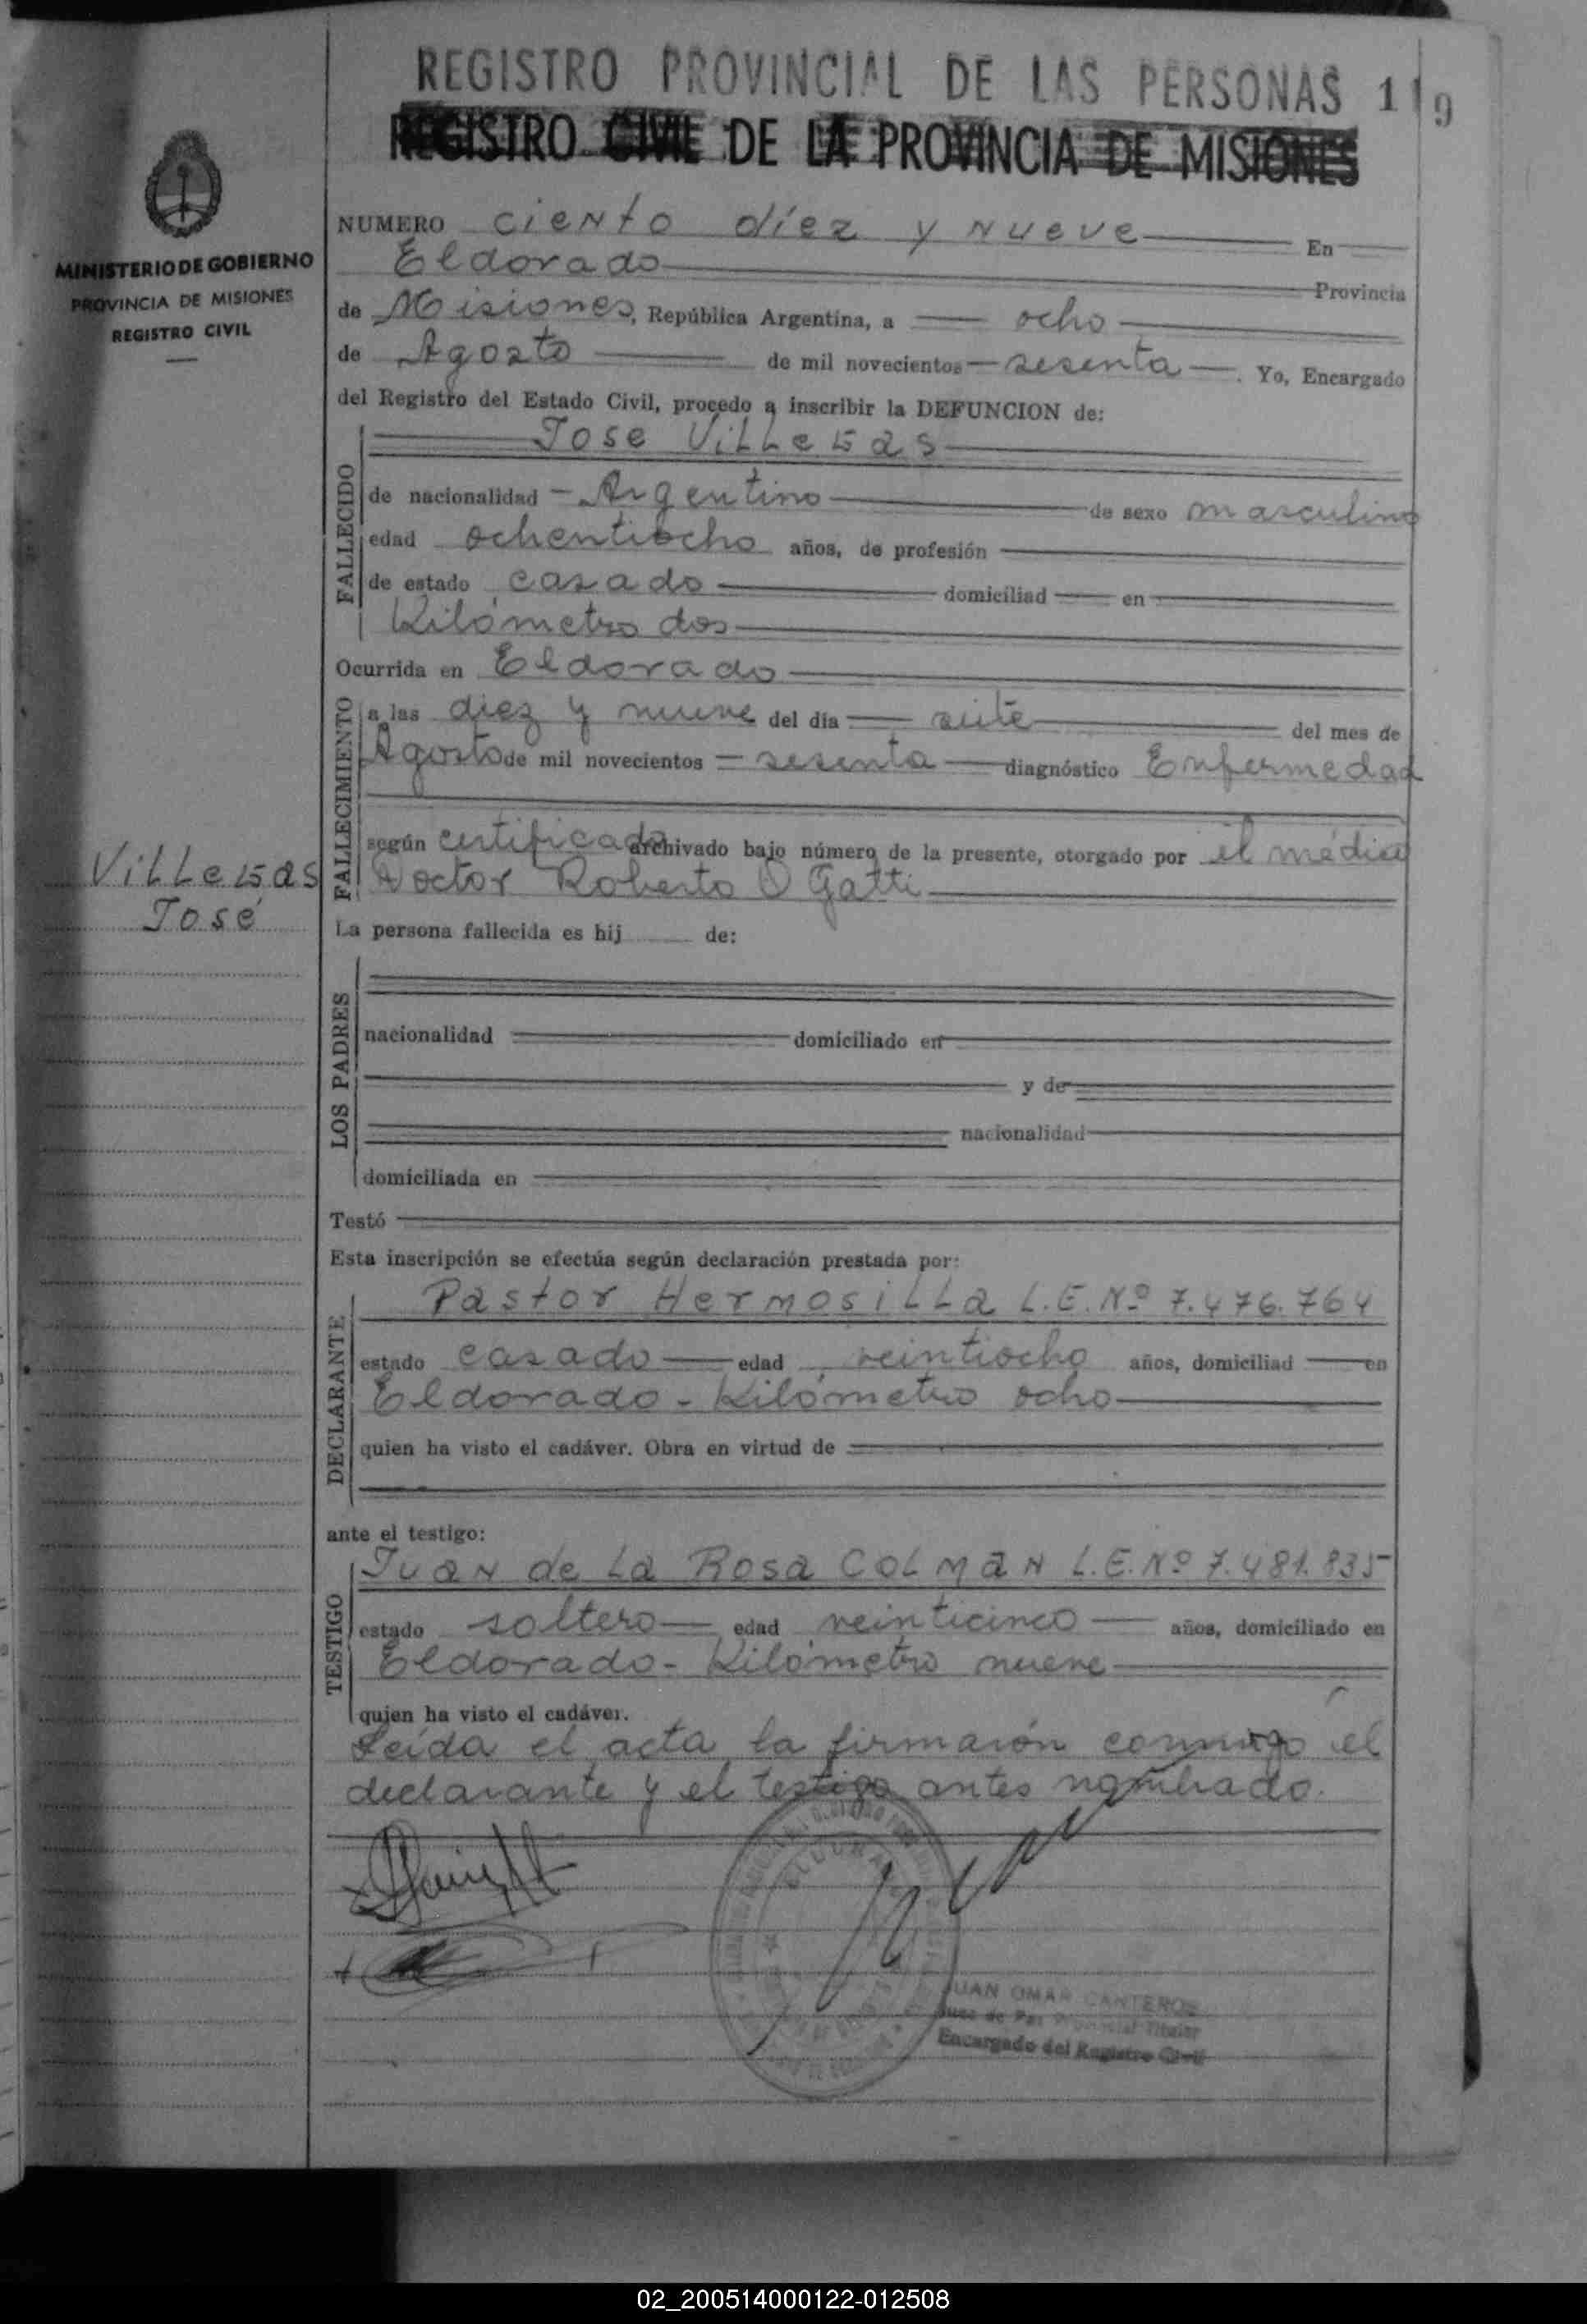 REGISTRO PROVINCIAL DE LAS PERSONAS 119
REGISTRO CIVIL DE LA PROVINCIA DE MISIONES
MINISTERIO DE GOBIERNO
PROVINCIA DE MISIONES
REGISTRO CIVIL
NUMERO ciento diez y nueve En
Eldorado Provincia
de Misiones, República Argentina, a ocho
de Agosto de mil novecientos sesenta. Yo, Encargado
del Registro del Estado Civil, procedo a inscribir la DEFUNCION de:
FALLECIDO
Jose Villegas
de nacionalidad Argentino de sexo masculino
edad ochentiocho años, de profesión
de estado casado domiciliad en
Kilómetro dos
Ocurrida en Eldorado
FALLECIMIENTO
a las diez y nueve del día siete del mes de
Agosto de mil novecientos sesenta diagnóstico Enfermedad
según certificado archivado bajo número de la presente, otorgado por el médico
Doctor Roberto O Gatti
Villegas
José
La persona fallecida es hij de:
LOS PADRES
nacionalidad domiciliado en
y de
nacionalidad
domiciliada en
Testó
Esta inscripción se efectúa según declaración prestada por:
DECLARANTE
Pastor Hermosilla L.E. Nº 7.476.764
estado casado edad veintiocho años, domiciliad en
Eldorado - Kilómetro ocho
quien ha visto el cadáver. Obra en virtud de
ante el testigo:
TESTIGO
Juan de La Rosa Colman L.E. Nº 7.481.835
estado soltero edad veinticinco años, domiciliado en
Eldorado - Kilómetro nueve
quien ha visto el cadáver.
Leída el acta la firmarón conmigo el
declarante y el testigo antes nombrado.
JUAN OMAR CANTEROS
Juez de Paz Provincial Titular
Encargado del Registro Civil
02_200514000122-012508